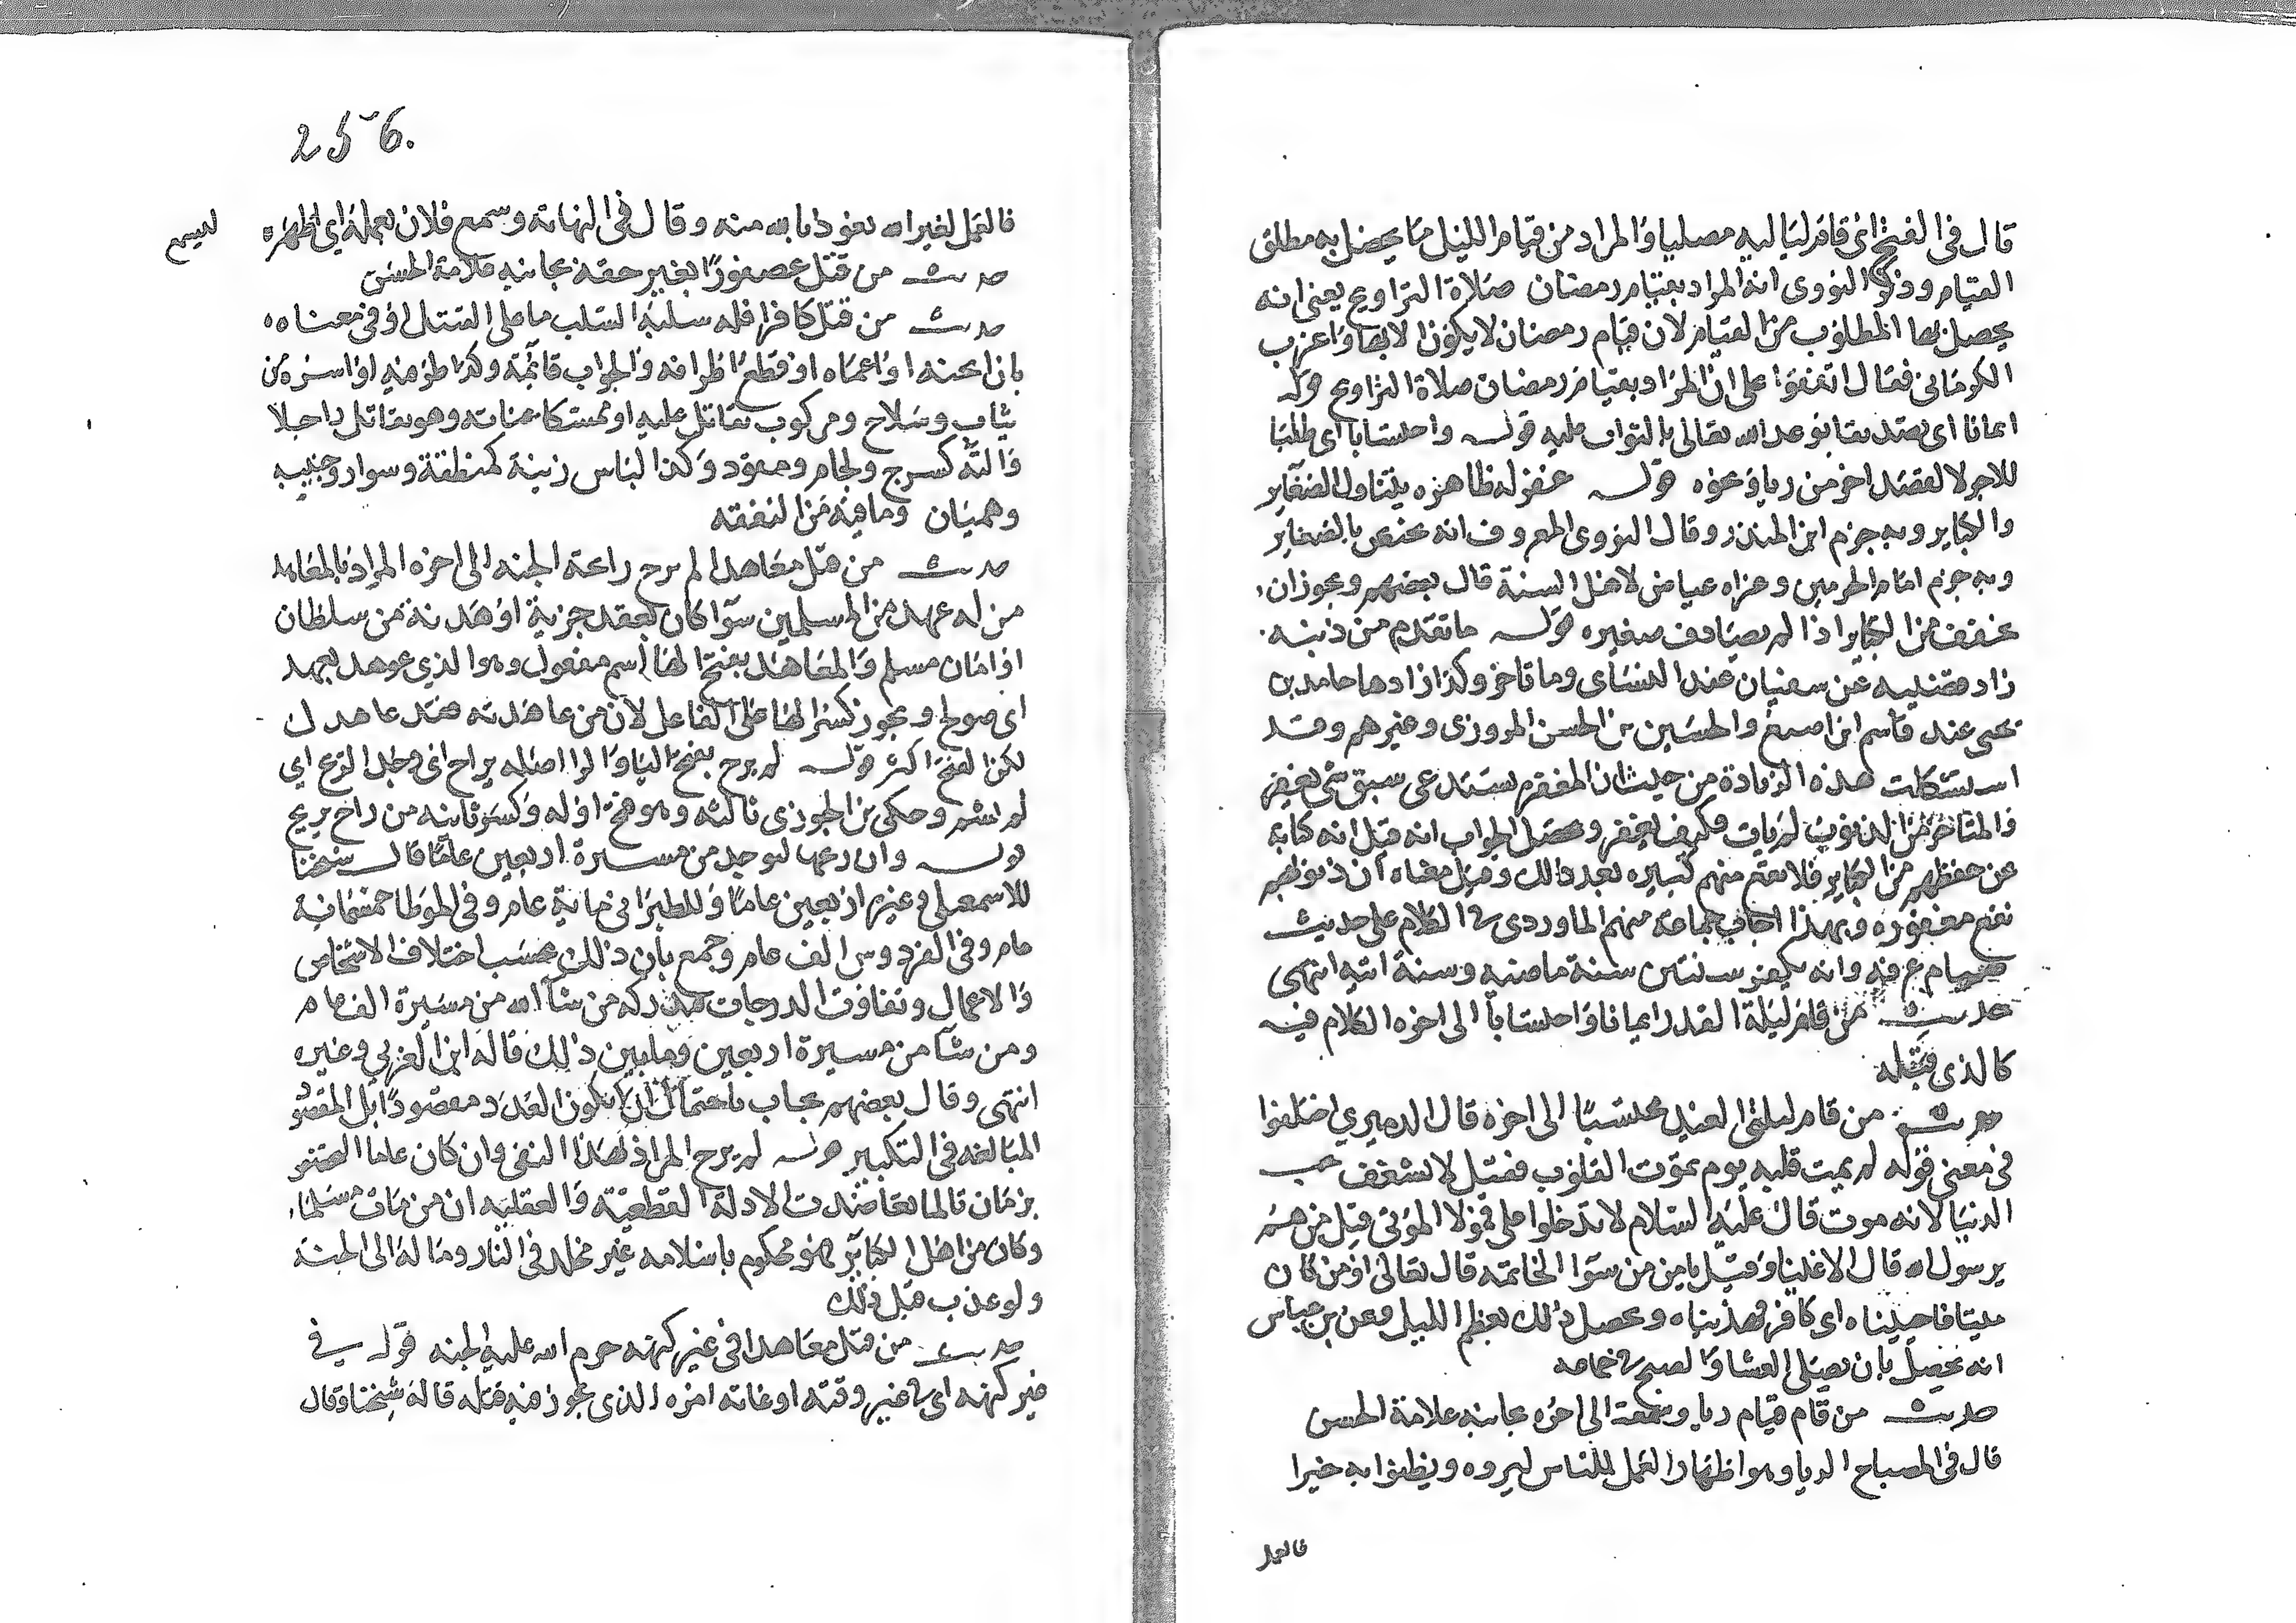 قال في الفتح اي قام لياليه مصليا والمراد من قيام الليل ما يحصل به مطلق
القيام وذكر النووي ان المراد بقيام رمضان صلاة التراويح يعني انه
يحصل بها المطلوب من القيام لا ان قيام رمضان لا يكون الا بها واغرب
الكرماني فقال اتفقوا على ان المراد بقيام رمضان صلاة التراويح قوله
ايمانا اي تصديقا بوعد الله تعالى بالثواب عليه قوله واحتسابا اي طلبا
للاجر لا لقصد اخر من ريا ونحوه قوله غفر له ظاهره يتناول الصغاير
والكباير وبه جزم ابن المنذر وقال النووي المعروف انه يختص بالصغاير
وبه جزم امام الحرمين وعزاه عياض لاهل السنة قال بعضهم ويجوز ان
يخفف من الكباير اذا لم يصادف صغيره قوله ما تقدم من ذنبه
زاد قتيبه عن سفيان عند النسائ وما تاخر وكذا زادها حامد بن
يحيى عند قاسم ابن اصبغ والحسين بن الحسن المروزي وغيرهم وقد
استشكلت هذه الزيادة من حيث ان المغفرة تستدعي سبق شي يغفر
والمتاخر من الذنوب لم يات فكيف يغفر ومحصل الجواب انه قيل انه كناية
عن حفظهم من الكباير فلا تقع منهم كبيره بعد ذالك وقيل معناه ان ذنوبهم
تقع مغفوره وبهذا اجاب جماعة منهم الماوردي في الكلام على حديث
صيام عرفه وانه يكفر سنتين سنة ماضيه وسنة اتيه انتهى
حديث من قام ليلة القدر ايمانا واحتسابا الى اخره الكلام فيه
كالذي قبله
حديث من قام ليلتي العيد محتسبا الى اخره قال الدميري اختلفوا
في معنى قوله لم يمت قلبه يوم تموت القلوب فقيل لا تشغف بحب
الدنيا لانه موت قال عليه السلام لا تدخلوا على هولا الموتى قيل من هم
يرسول الله قال الاغنيا وقيل يامن من سوا الخاتمة قال تعالى اومن كان
ميتا فاحييناه اي كافر فهديناه ويحصل ذلك بعظم الليل وعن بن عباس
انه يحصل بان يصلي العشا والصبح في جماعه
حديث من قام مقام ريا وسمعة الى اخره بجانبه علامة الحسن
قال في المصباح الريا وهو اظهار العمل للناس ليروه ويظنوا به خيرا
فالعمل
256.
فالعمل لغير الله نعوذ بالله منه وقال في النهاية وسمع فلان بعمله اي اظهره
ليسمع
حديث من قتل عصفورا بغير حقه بجانبه علامة الحسن
حديث من قتل كافرا فله سلبه السلب ما على القتيل او في معناه
بان اثخنه او اعماه او قطع اطرافه والجواب قائمة وكذا لو منه او اسره من
ثياب وسلاح ومركوب يقاتل عليه او ممسكا عنانه وهو يقاتل راجلا
والته كسرج ولجام ومقود وكذا لباس زينة كمنطقة وسوار وجنيبه
وهميان وما فيه من النفقه
حديث من قتل معاهدا لم يرح رائحة الجنه الى اخره المراد بالمعاهد
من له عهد من المسلمين سوا كان بعقد جزية او هدنة من سلطان
او امان مسلم والمعاهد بفتح الها اسم مفعول وهو الذي عوهد بعهد
اي صولح ويجوز كسر الها على الفاعل لان من عاهدته فقد عاهدك
لكن الفتح اكثر قوله لم يرح بفتح اليا والرا اصله يراح اي وجد الريح اي
لم يشم وحكى بن الجوزي ثالثه وهو فتح اوله وكسر ثانيه من راح يريح
قوله وان ريحها ليوجد من مسيرة اربعين عاما قال شيخنا
للاسمعيلي وغيره اربعين عاما وللطبراني مائة عام وفي الموطا خمسمائة
عام وفي الفردوس الف عام وجمع بان ذلك بحسب اختلاف الاشخاص
والاعمال وتفاوت الدرجات فيدركه من شآ الله من مسيرة الف عام
ومن شآ من مسيرة اربعين وما بين ذلك قاله ابن العربي وغيره
انتهى وقال بعضهم يجاب باحتمال ان لا يكون العدد مقصودا بل المقصود
المبالغه في التكثير قوله لم يرح المراد بهذا النفي وان كان عاما التخصيص
بزمان ما لما تعاضدت الادلة القطعية والعقليه ان من مات مسلما
وكان من اهل الكبائر فهو محكوم باسلامه غير مخلد في النار وماله الى الجنة
ولو عذب قبل ذلك
حديث من قتل معاهدا في غير كنهه حرم الله عليه الجنه قوله في
غير كنهه اي في غير وقته او غاية امره الذي يجوز فيه قتله قاله شيخنا وقال